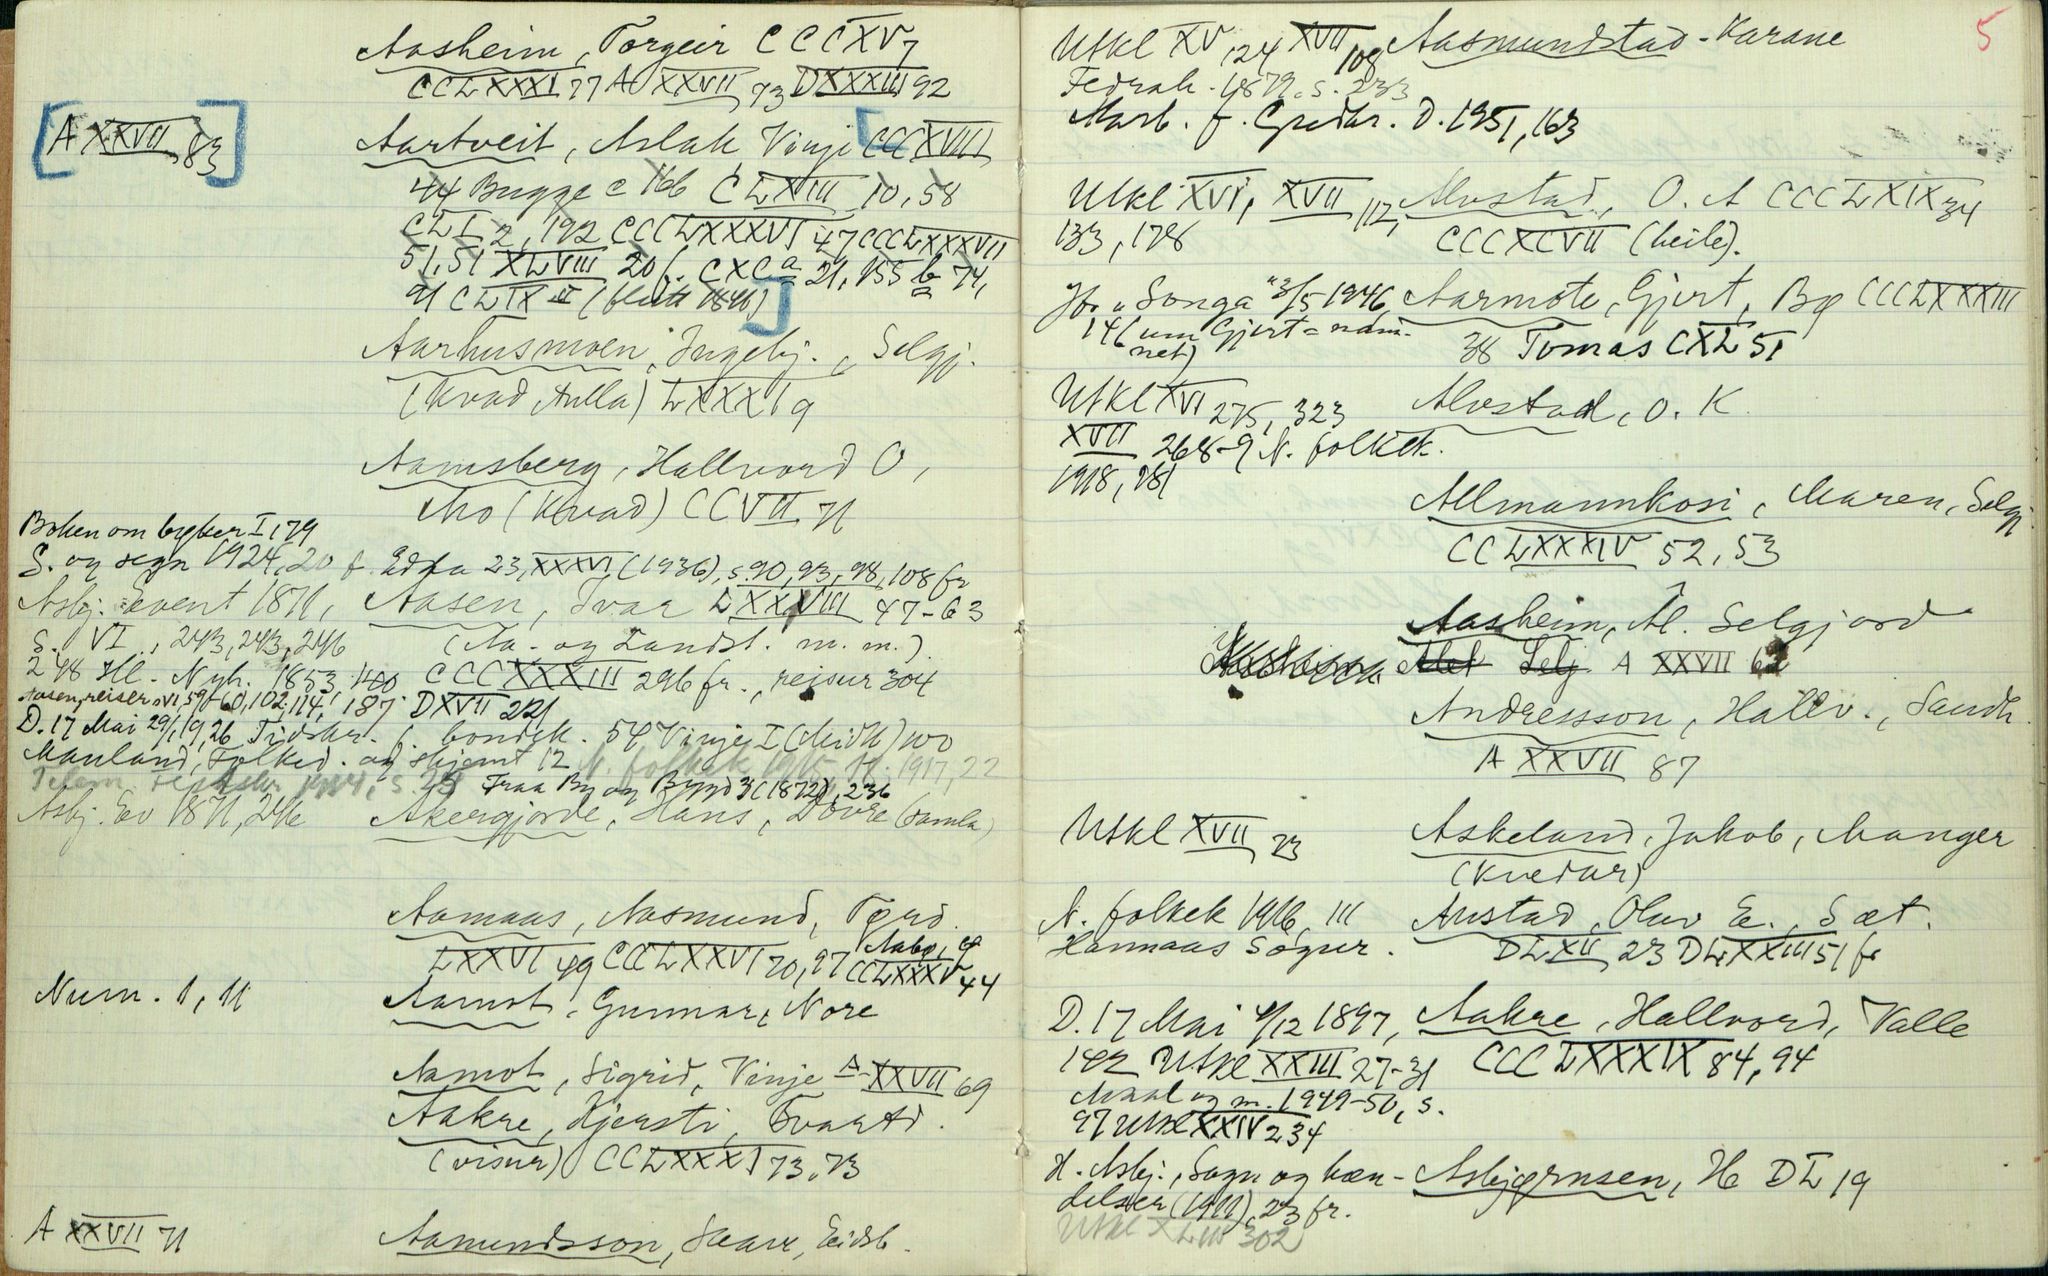 Aasheim, Torgeir CCCXV 7
CCLXXXI 77 A XXVII 73 DXXXIII 92
[A XXVII 83]
Aartveit, Aslak Vinje [CCCXVIII
44 Bugge c 166 CLXIII 10, 58
CLI 2, 192 CCCLXXXVI 47 CCCLXXXVII
51, 51 XLVIII 20 f. CXC a 21, 155 b 74,
91 CLIX ]
Aarhusmoen, Ingebj., Selgj.
(Kvad Aulla) LXXXI 9
Aamsberg, Hallvord O,
Mo (Kvad) CCVII 71
Boken om bøker I, 79
S. og segn 1924, 20 f. Edda 23, XXXVI (1936), s. 90, 93, 98, 108 fr
Asbj. Event 1871, Aasen, Ivar LXXVIII 47-63
S. VI, 243, 243, 246 (Aa. og Landst. m. m.)
248 Ill. Nyh. 1853, 140 CCCXXXIII 296 fr., reisur 304
Aasen, reiser VI, 59-60, 102, 114, 187 DXVII 221
D. 17 Mai 29/1, 19, 26 Tidskr. f. bondek. 54 Vinje I (Midtt) 100
Mauland, Folked. og skjemt 12 N. folkek 1917, 22
Fraa By og Bygd 3 (1872), 236
Asbj. Ev 1871, 246 Akergjorde, Hans, Dovre (samla)
Aamaas, Aasmund, Tørd.
LXXVI 49 CCLXXVI 70, 97 CCLXXXV 44
Num. 1, 11 Aamot, Gunnar, Nore
Aamot, Sigrid, Vinje A XXVII 69
Aakre, Kjersti, Tvartd.
(visur) CCLXXXI 73, 73
A XXVII 71 Aamundsson, Eidsb.
5
Utkl XV 124 XVII 108 Aasmundstad-Karane
Fedrah. 1879. s. 233
Aarb. f. Gredkr. D. 1951, 163
Utkl XVI, XVII 112, Alvstad, O. A CCCLXIX 34
133, 178 CCCXCVII (heile).
Jfr. "Songa" 3/5 1946, Aarmote, Gjert, Bø CCCLXXXIII
146 (um Gjert = nam- 38 Tomas CXL 51
net)
Utkl XVI 275, 323 Alvstad, O. K
XVII 268-9 N. folkek.
1918, 281
Allmannkosi, Maren, Selgj
CCLXXXIV 52, 53
Aasheim, Al. Selgjord
A XXVII 62
Andresson, Hallv., Sandh.
A XXVII 87
Utkl XVII 23 Askeland, Jakob, Manger
(Kvedar)
N. folkek 1916, 111 Austad, Olav E., Sæt.
Hannaas Sogur. DLXII 23 DLXXIII 51 fr
D. 17 Mai 4/12 1897, Aakre, Hallvord, Valle
142 Utkl XXIII 27-31 CCCLXXXIX 84, 94
Maal og m. 1949-50, s.
97 Utkl XXIV 234
H. Asbj., Sagn og hæn- Asbjørnsen, H DL 19
delser (1911), 23 fr.
Utkl XLIII 302